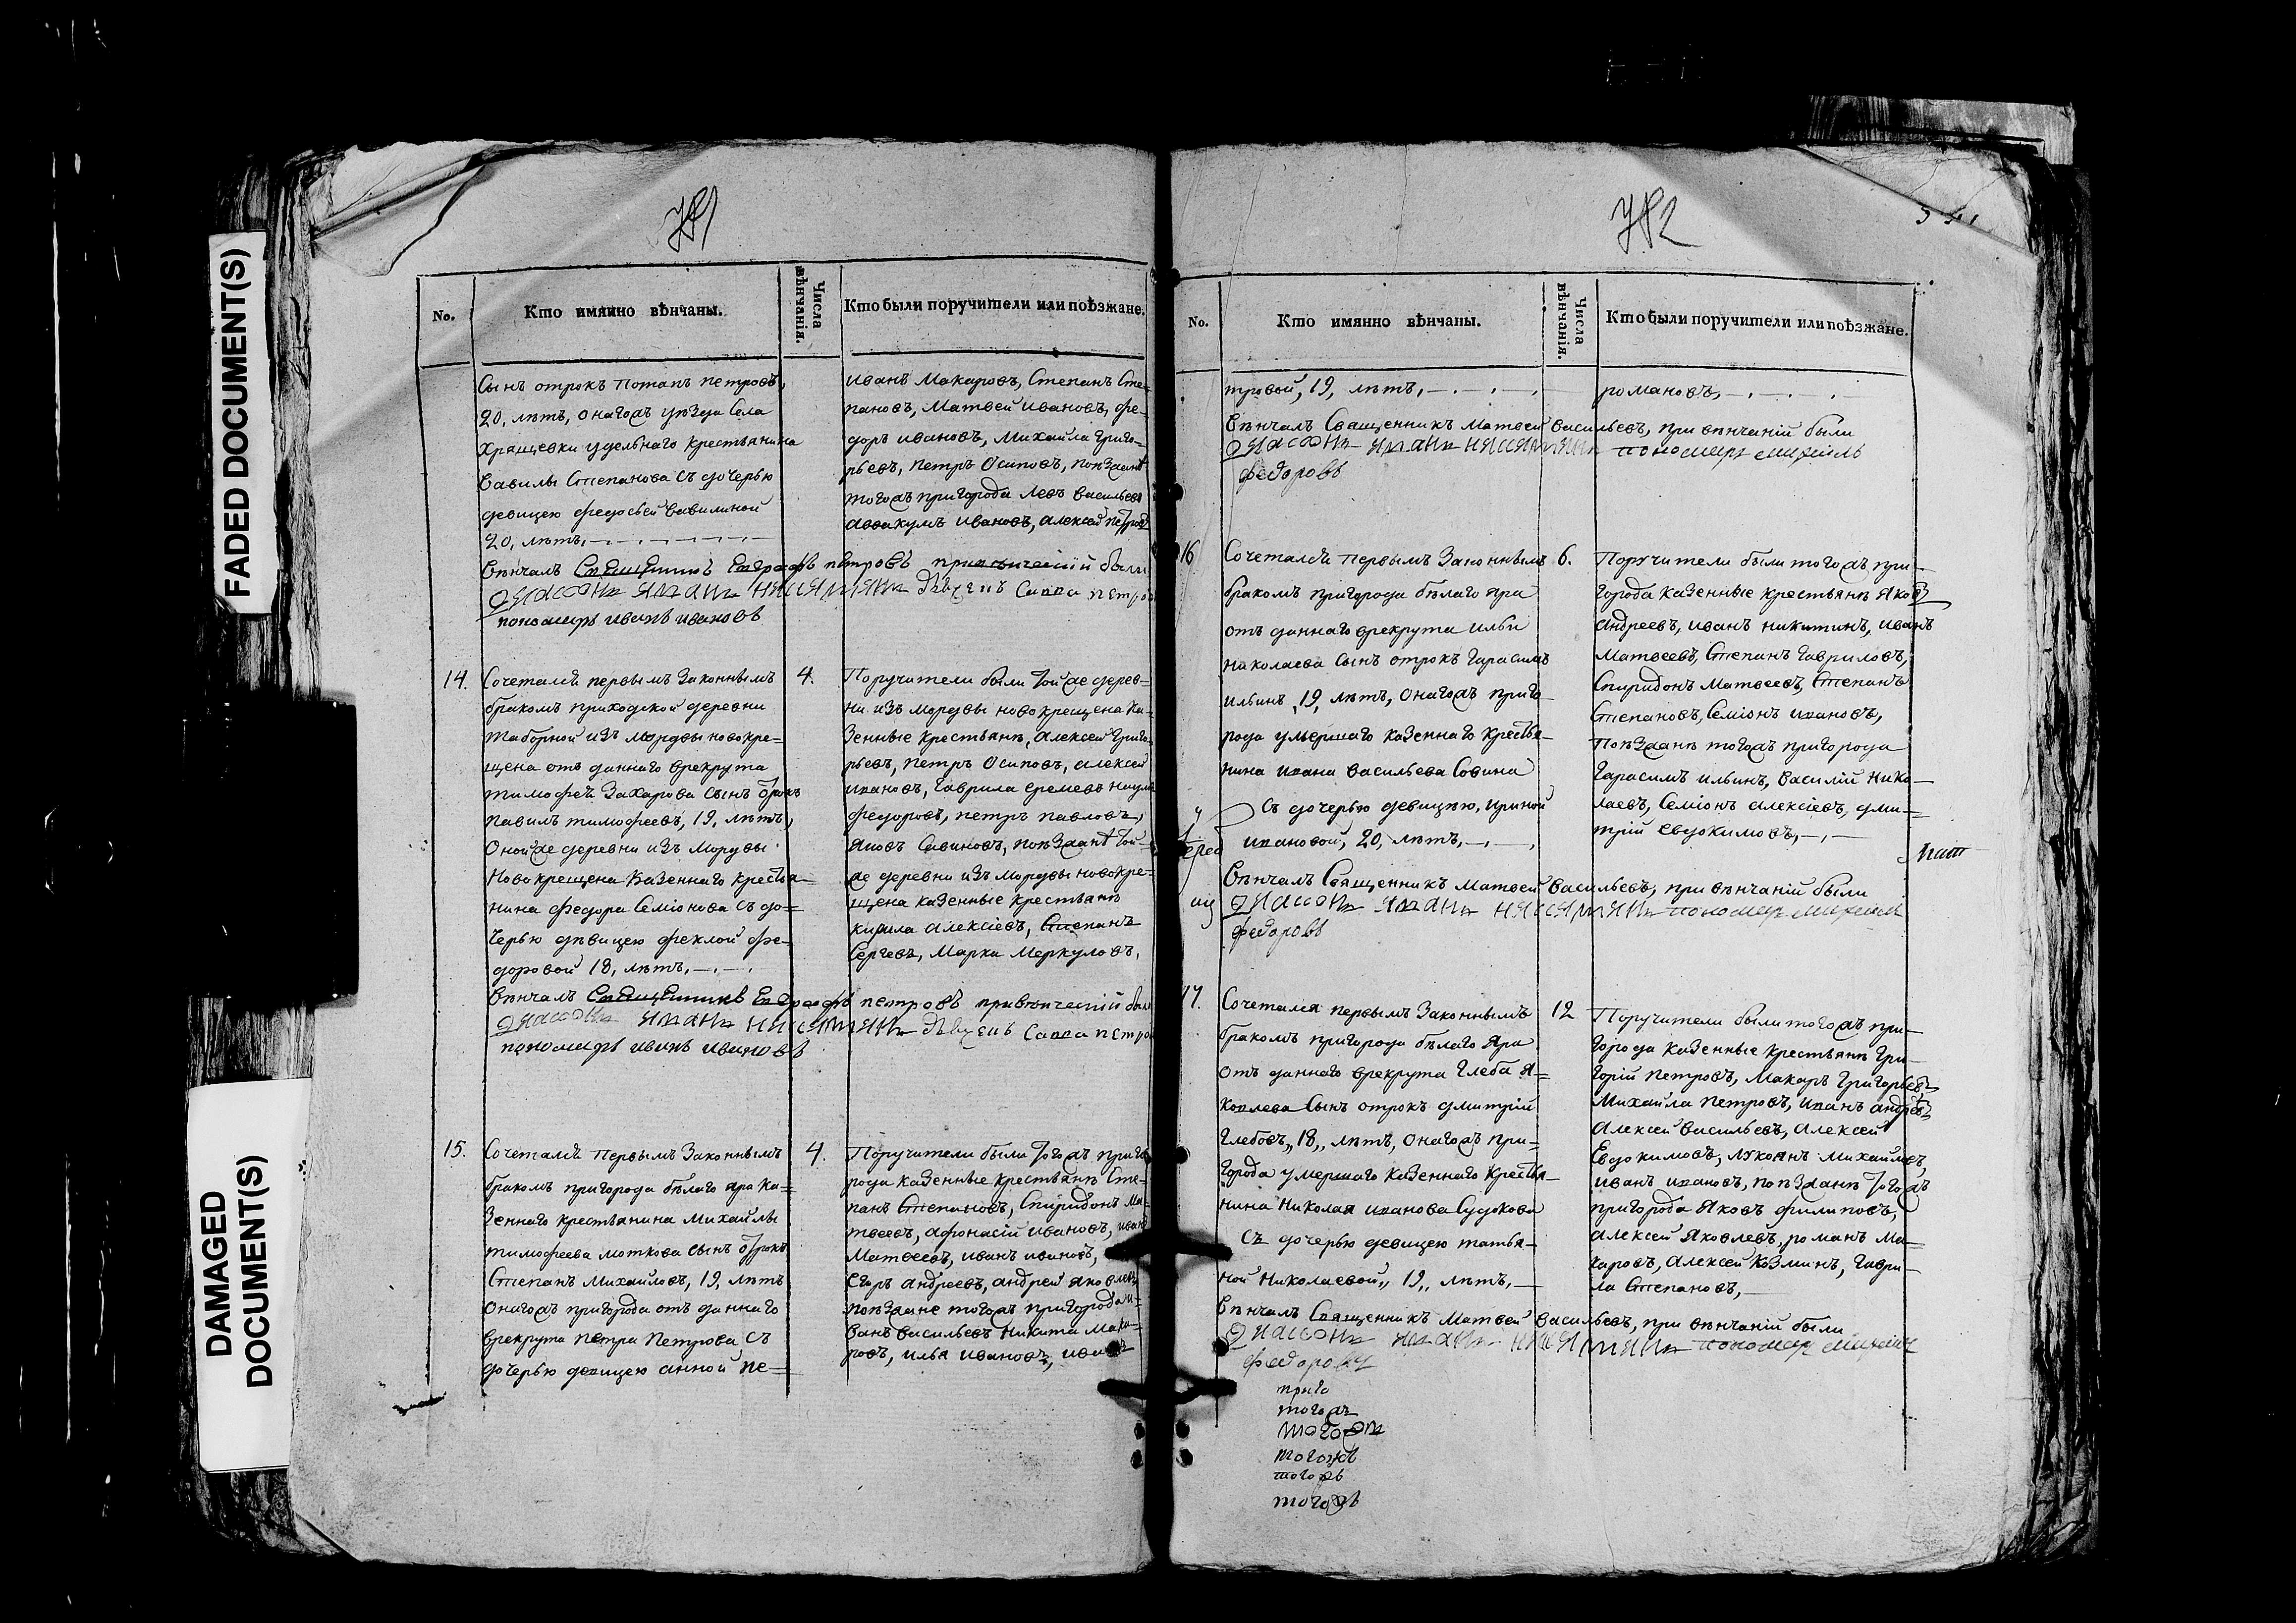 FADED DOCUMENT(S)
DAMAGED
DOCUMENT(S)
781
No.
Кто имянно вѣнчаны.
Числа вѣнчанія.
Кто были поручители или поѣзжане.
Сынъ отрокъ Потапъ Петровъ,
20, лѣтъ, онагожъ уѣзда Села
Хрящевки удельнаго крестьянина
Вавилы Степанова съ дочерью
девицею Федосьей Вавилиной
20, лѣтъ,
Вѣнчалъ Священникъ Евграфъ Петровъ при венчаніи были
Диаконъ Иванъ Дьячекъ Савва Петро
пономарь Иванъ Ивановъ
Иванъ Макаровъ, Степанъ Сте-
пановъ, Матвей Ивановъ, Фе-
доръ Ивановъ, Михайла Григо-
рьевъ, Петръ Осиповъ, поѣзжанѣ
тогожъ пригорода Левъ Васильевъ
Аввакумъ Ивановъ, Алексей Петровъ
14.
Сочетался первымъ Законнымъ
бракомъ приходской деревни
Таборной изъ мордвы новокре=
щена отъ даннаго врекрута
Тимофей Захарова сынъ отрокъ
Павилъ Тимофеевъ, 19, лѣтъ,
Онойже деревни изъ мордвы
Новокрещена Казеннаго крестья=
нина Федора Семіонова съ до=
черью дѣвицею Феклой Фе=
доровой 18, лѣтъ,
Вѣнчалъ Священникъ Евграфъ Петровъ при венчаніи был
Диаконъ Иванъ Дьячекъ Савва Петро
пономарь Иванъ Ивановъ
4.
Поручители были тойже дерев=
ни изъ мордвы новокрещена Ка=
зенные крестьянѣ, Алексей Григо
рьевъ, Петръ Осиповъ, Алексей
Ивановъ, Гаврила Еремевъ Наумъ
Федоровъ, Петръ Павловъ,
Яковъ Савиновъ, поѣзжанѣ той=
же деревни изъ мордвы новокре=
щена казенные крестьянѣ
Кирила Алексіевъ, Степанъ
Сергевъ, Марка Меркуловъ,
15.
Сочетался первымъ Законнымъ
бракомъ пригорода бѣлаго яра Ка=
зеннаго крестьянина Михайлы
Тимофеева Моткова сынъ отрокъ
Степанъ Михайловъ, 19, лѣтъ
онагожъ пригорода отъ даннаго
врекрута Петра Петрова съ
дочерью девицею Анной Пе=
4.
Поручители были тогожъ приго
рода казенные крестьянѣ Сте-
панъ Степановъ, Спиридонъ Ма-
твеевъ, Афонасій Ивановъ, Иван
Матвеевъ, Иванъ Ивановъ,
Егоръ Андреевъ, Андрей Яковлевъ
поѣзжане тогожъ пригорода И=
ванъ Васильевъ Никита Мака-
ровъ, Илья Ивановъ, Иванъ
782
No.
Кто имянно вѣнчаны.
Числа вѣнчанія.
Кто были поручители или поѣзжане.
тровой, 19, лѣтъ,
Романовъ,
Вѣнчалъ Священникъ Матвей Васильевъ, при вѣнчаніи были
Диаконъ Иванъ пономарь Михаилъ
Федоровъ
16
Сочетался первымъ Законнымъ
бракомъ пригорода бѣлаго яра
отъ даннаго врекрута Ильи
Николаева сынъ отрокъ Гарасимъ
Ильинъ, 19, лѣтъ, онагожъ приго
рода умершаго казеннаго крестья-
нина Ивана Васильева Совина
съ дочерью девицею, Ириной
Ивановой, 20, лѣтъ,
Вѣнчалъ Священникъ Матвей Васильевъ, при вѣнчаніи были
Диаконъ Иванъ пономарь Михаилъ
Федоровъ
6.
Поручители были тогожъ при-
города казенные крестьянѣ Яковъ
Андреевъ, Иванъ Никитинъ, Иванъ
Матвеевъ, Степанъ Гавриловъ,
Спиридонъ Матвеевъ, Степанъ
Степановъ, Семіонъ Ивановъ,
Поѣзжанѣ тогожъ пригорода
Гарасимъ Ильинъ, Василій Нико-
лаевъ, Семіонъ Алексіевъ, Дми-
трій Евдокимовъ,
17.
Сочетался первымъ Законнымъ
бракомъ пригорода бѣлаго яра
отъ даннаго врекрута Глеба Я=
ковлева сынъ отрокъ Дмитрій
Глебовъ,, 18,, лѣтъ, онагожъ при=
города умершаго казеннаго крестья-
нина Николая Иванова Судокова
Съ дочерью девицею Татья-
ной Николаевой,, 19,, лѣтъ,
Вѣнчалъ Священникъ Матвей Васильевъ, при вѣнчаніи были
Диаконъ Иванъ пономарь Михаилъ
Федоровъ
12
Поручители были тогожъ при-
города казенные крестьянѣ Гри-
горій Петровъ, Макаръ Григорьевъ
Михайла Петровъ, Иванъ Андреевъ
Алексей Васильевъ, Алексей
Евдокимовъ, Лукоянъ Михайловъ,
Иванъ Ивановъ, поѣзжанѣ тогожъ
пригорода Яковъ Филиповъ,
Алексей Яковлевъ, Романъ Ма-
каровъ, Алексей Козминъ, Гаври-
ла Степановъ,
приго
тогожъ
тогожъ
тогожъ
тогожъ
тогожъ